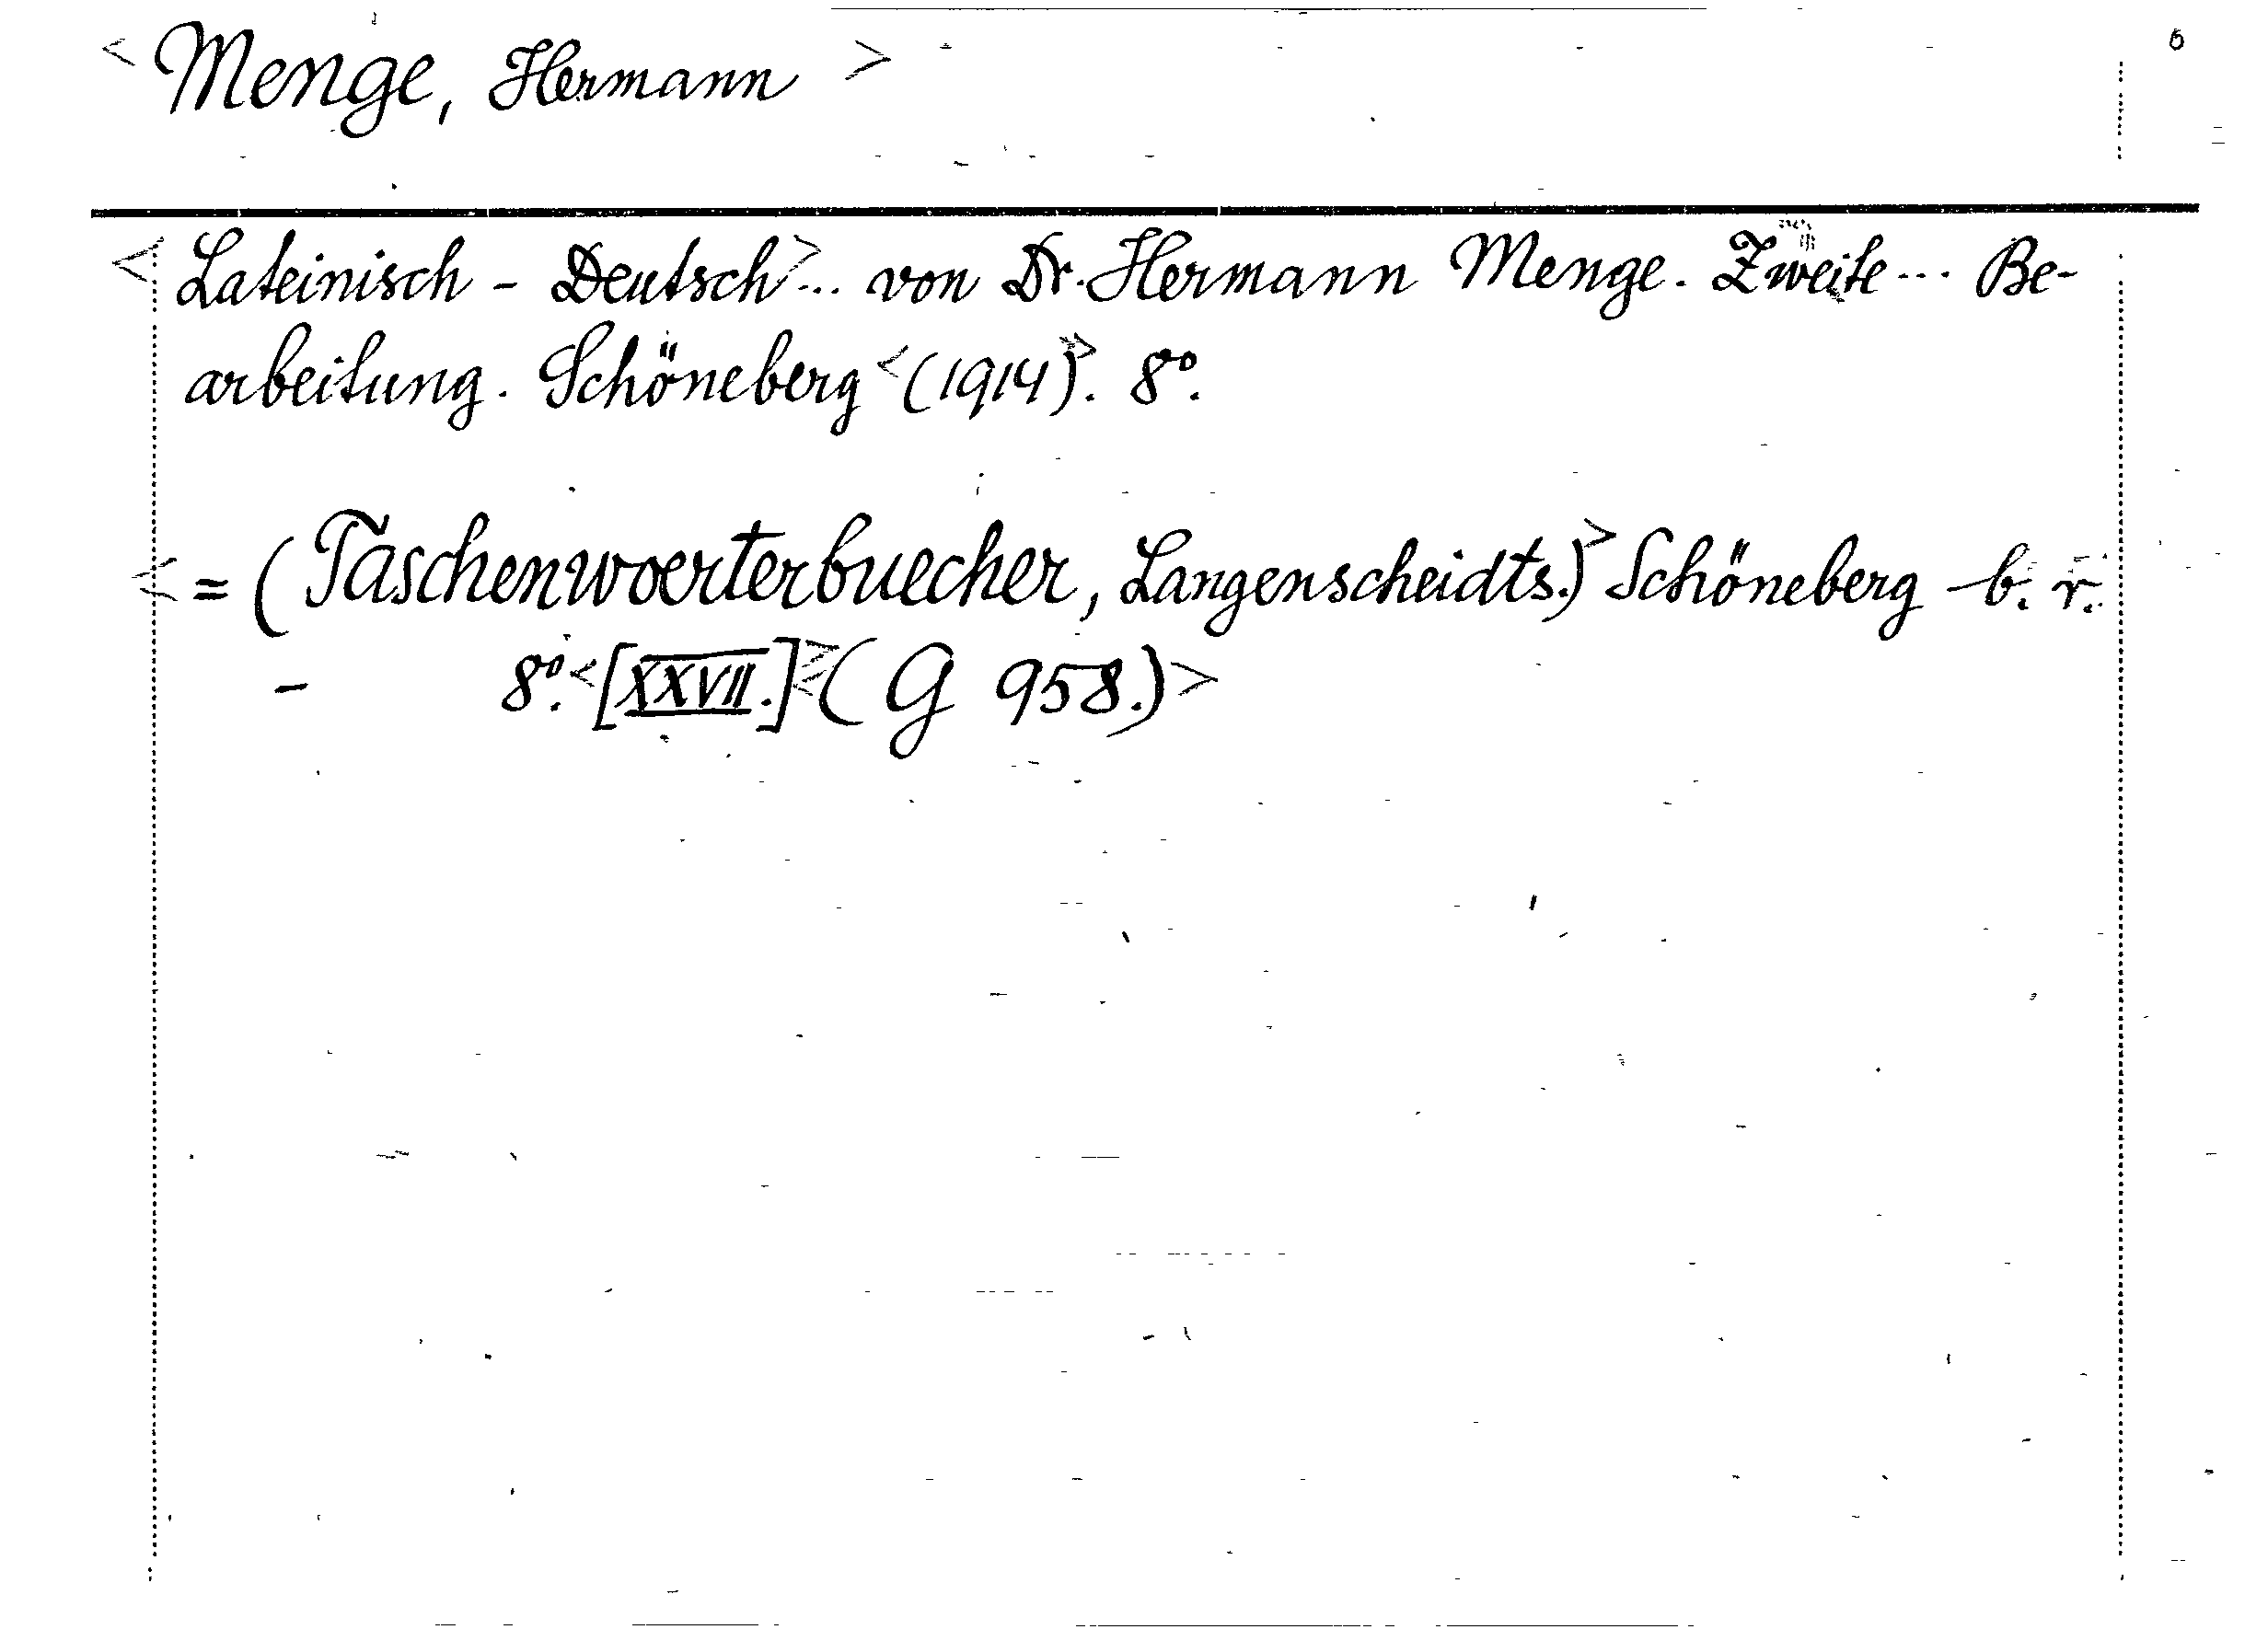 < Menge, Hermann >
< Lateinisch - Deutsch > ... von Dr. Hermann Menge. Zweite ... Be-
arbeitung. Schöneberg < (1914) >. 8°.
< = (Taschenwoerterbuecher, Langenscheidts.) > Schöneberg b. r.
- 8°. < [XXVII.] > < (G 958.) >